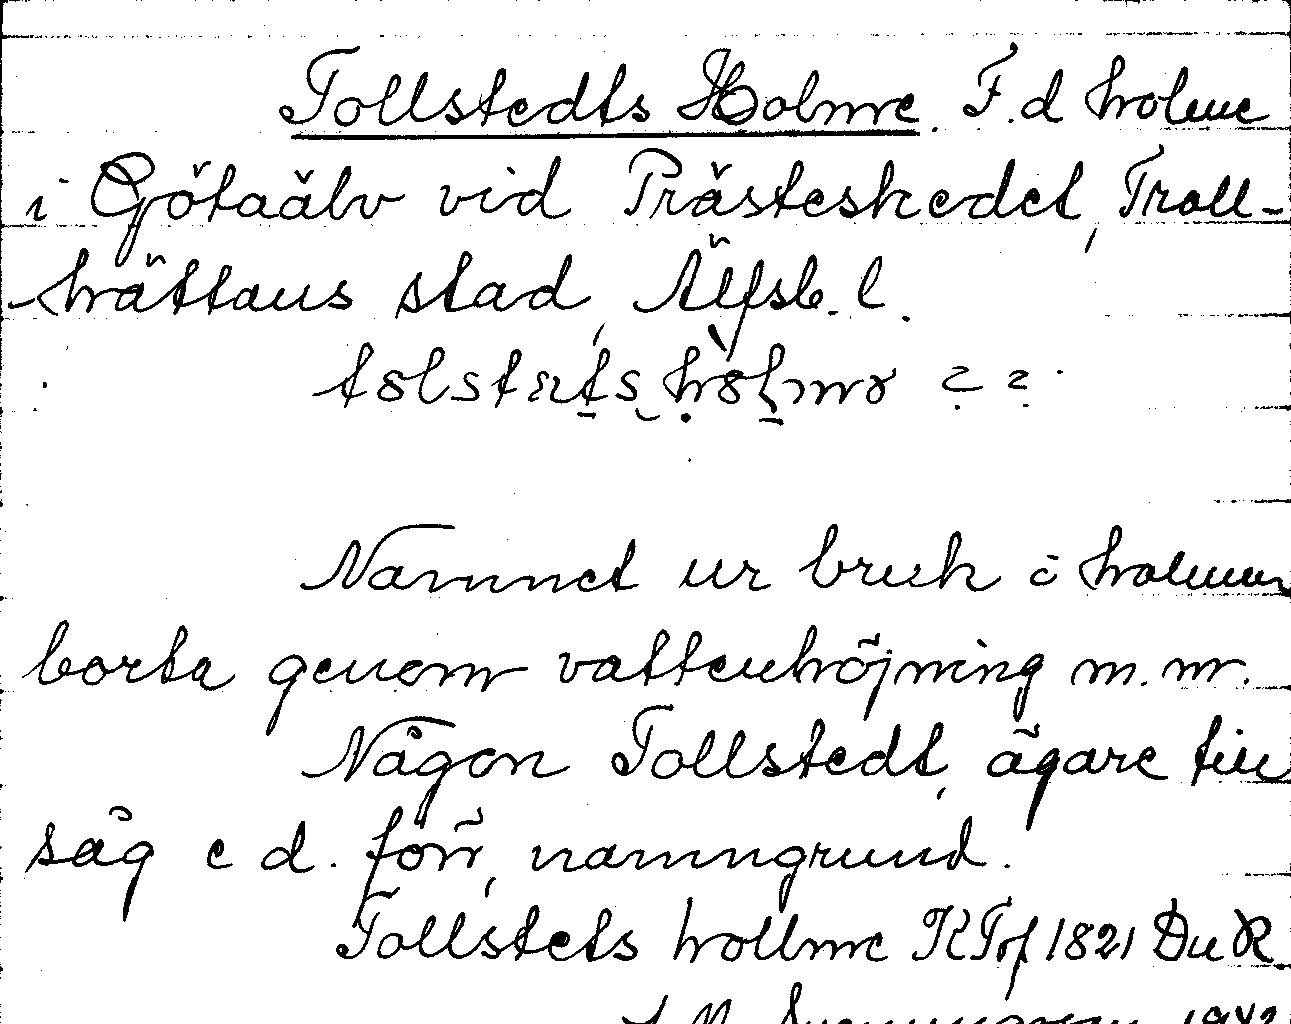 Tollstedts Holme. F.d holme
i Götaälv vid Prästeskedet, Troll-
hättans stad, Älfsb. l.
Namnet ur bruk o holmen
borta genom vattenhöjning m.m.
Någon Tollstedt, ägare till
såg e d. förr, namngrund.
Tollstets hollme KTrf 1821 Du R